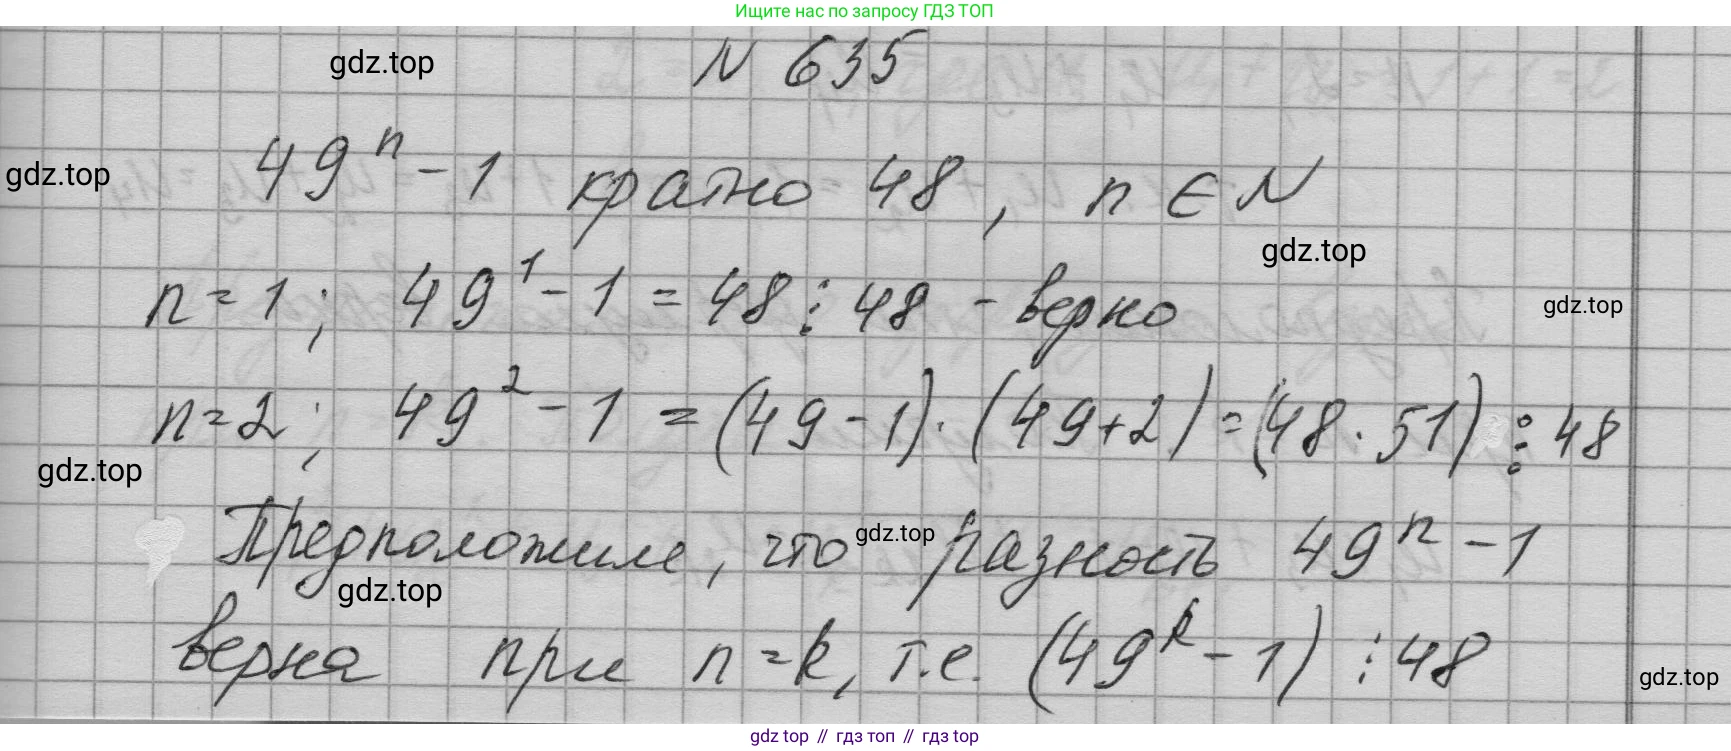 Ищите нас по запросу ГДЗ ТОП
N 635
gdz.top
49ⁿ - 1 кратно 48, n ∈ N
gdz.top
gdz.top
n = 1; 49¹ - 1 = 48 ⋮ 48 - верно
gdz.top
n = 2; 49² - 1 = (49 - 1) · (49 + 2) = (48 · 51) ⋮ 48
gdz.top
Предположим, что разность 49ⁿ - 1
gdz.top
gdz.top
верна при n = k, т.е. (49ᵏ - 1) ⋮ 48
gdz.top
gdz top // гдз топ // гдз top